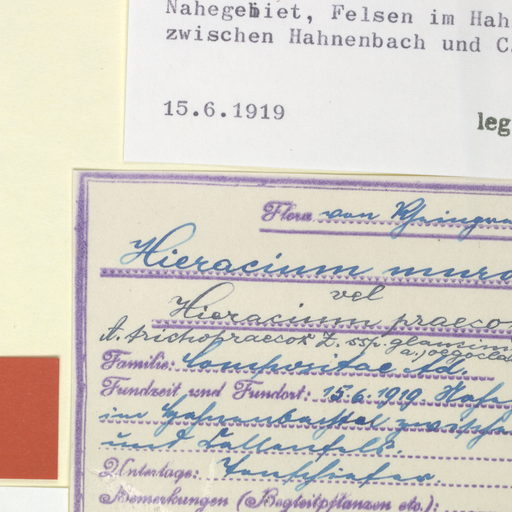 Nahegebiet, Felsen im Hah
zwischen Hahnenbach und C
15.6.1919
leg
Flora von
Hieracium mura
vel
Hieracium praecox
f. trichopraecox Z. ssp.
Familie: Compositae Ad.
Fundzeit und Fundort: 15.6.1919.
im Hahnenbachtal zwischen
und Callenfels.
Unterlage: Tonschiefer.
Bemerkungen (Begleitpflanzen etc.):